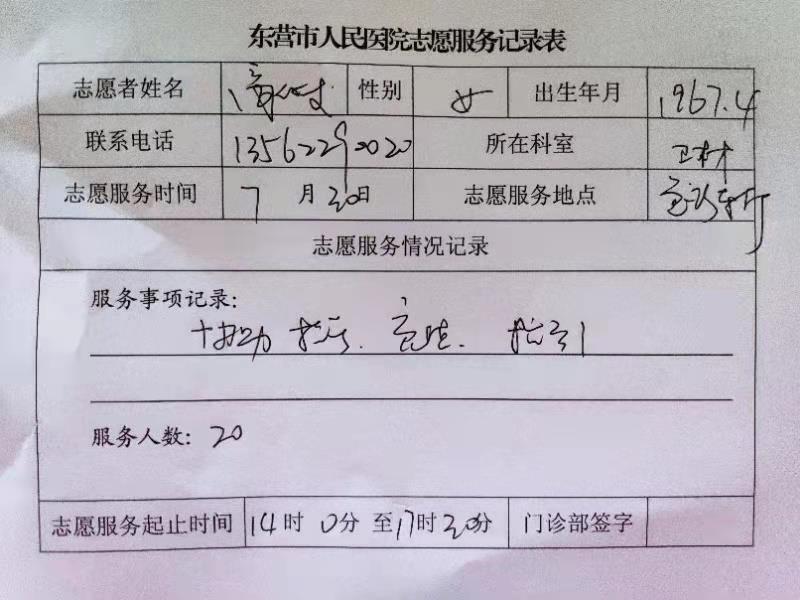 东营市人民医院志愿服务记录表
志愿者姓名 性别 女 出生年月 1967.4
联系电话 13562292020 所在科室 卫材
志愿服务时间 7 月 30日 志愿服务地点
志愿服务情况记录
服务事项记录:
协助 指引
服务人数: 20
志愿服务起止时间 14时 0分 至17时30分 门诊部签字